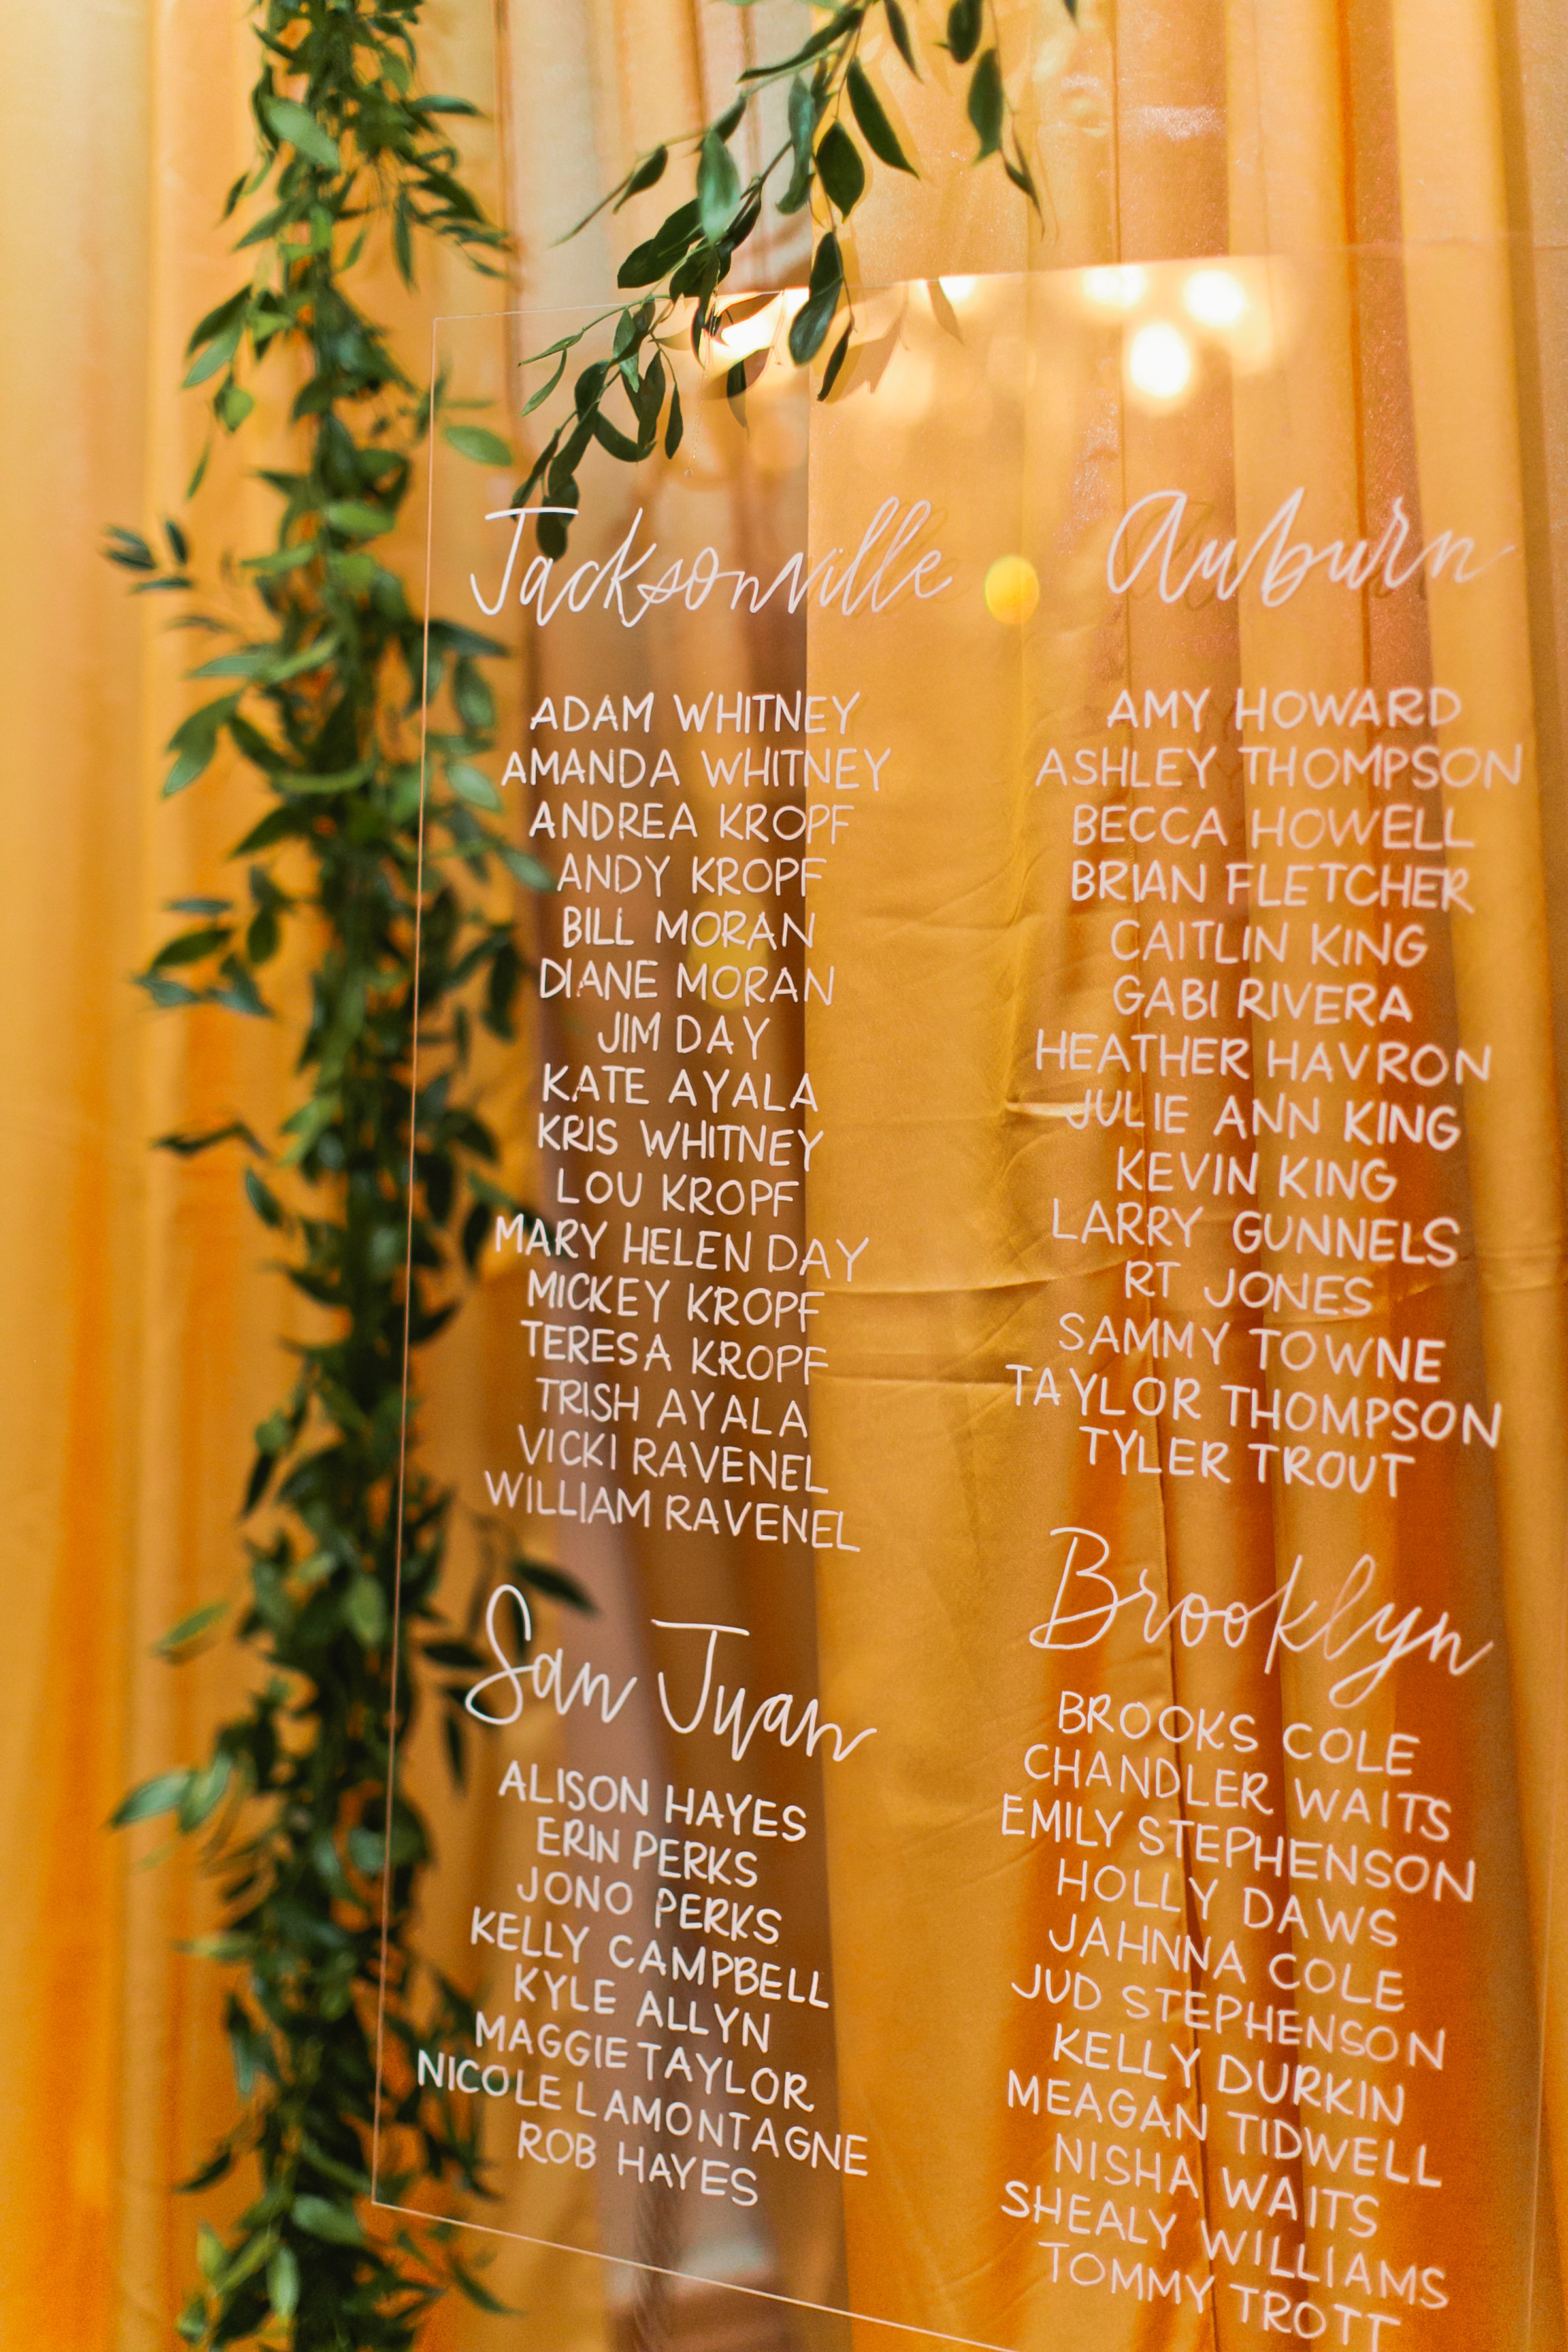 Jacksonville
ADAM WHITNEY
AMANDA WHITNEY
ANDREA KROPF
ANDY KROPF
BILL MORAN
DIANE MORAN
JIM DAY
KATE AYALA
KRIS WHITNEY
LOU KROPF
MARY HELEN DAY
MICKEY KROPF
TERESA KROPF
TRISH AYALA
VICKI RAVENEL
WILLIAM RAVENEL
San Juan
ALISON HAYES
ERIN PERKS
JONO PERKS
KELLY CAMPBELL
KYLE ALLYN
MAGGIE TAYLOR
NICOLE LAMONTAGNE
ROB HAYES
Auburn
AMY HOWARD
ASHLEY THOMPSON
BECCA HOWELL
BRIAN FLETCHER
CAITLIN KING
GABI RIVERA
HEATHER HAVRON
JULIE ANN KING
KEVIN KING
LARRY GUNNELS
RT JONES
SAMMY TOWNE
TAYLOR THOMPSON
TYLER TROUT
Brooklyn
BROOKS COLE
CHANDLER WAITS
EMILY STEPHENSON
HOLLY DAWS
JAHNNA COLE
JUD STEPHENSON
KELLY DURKIN
MEAGAN TIDWELL
NISHA WAITS
SHEALY WILLIAMS
TOMMY TROTT